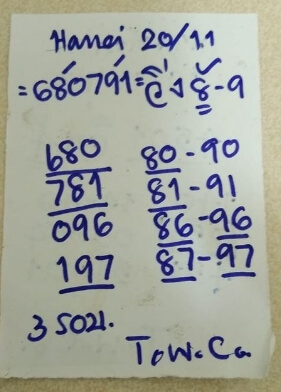 Hanoi 20/11
=680791=วิ่ง 8-9
680 80-90
781 81-91
096 86-96
197 87-97
3 รอบ.
T.W.Ca.